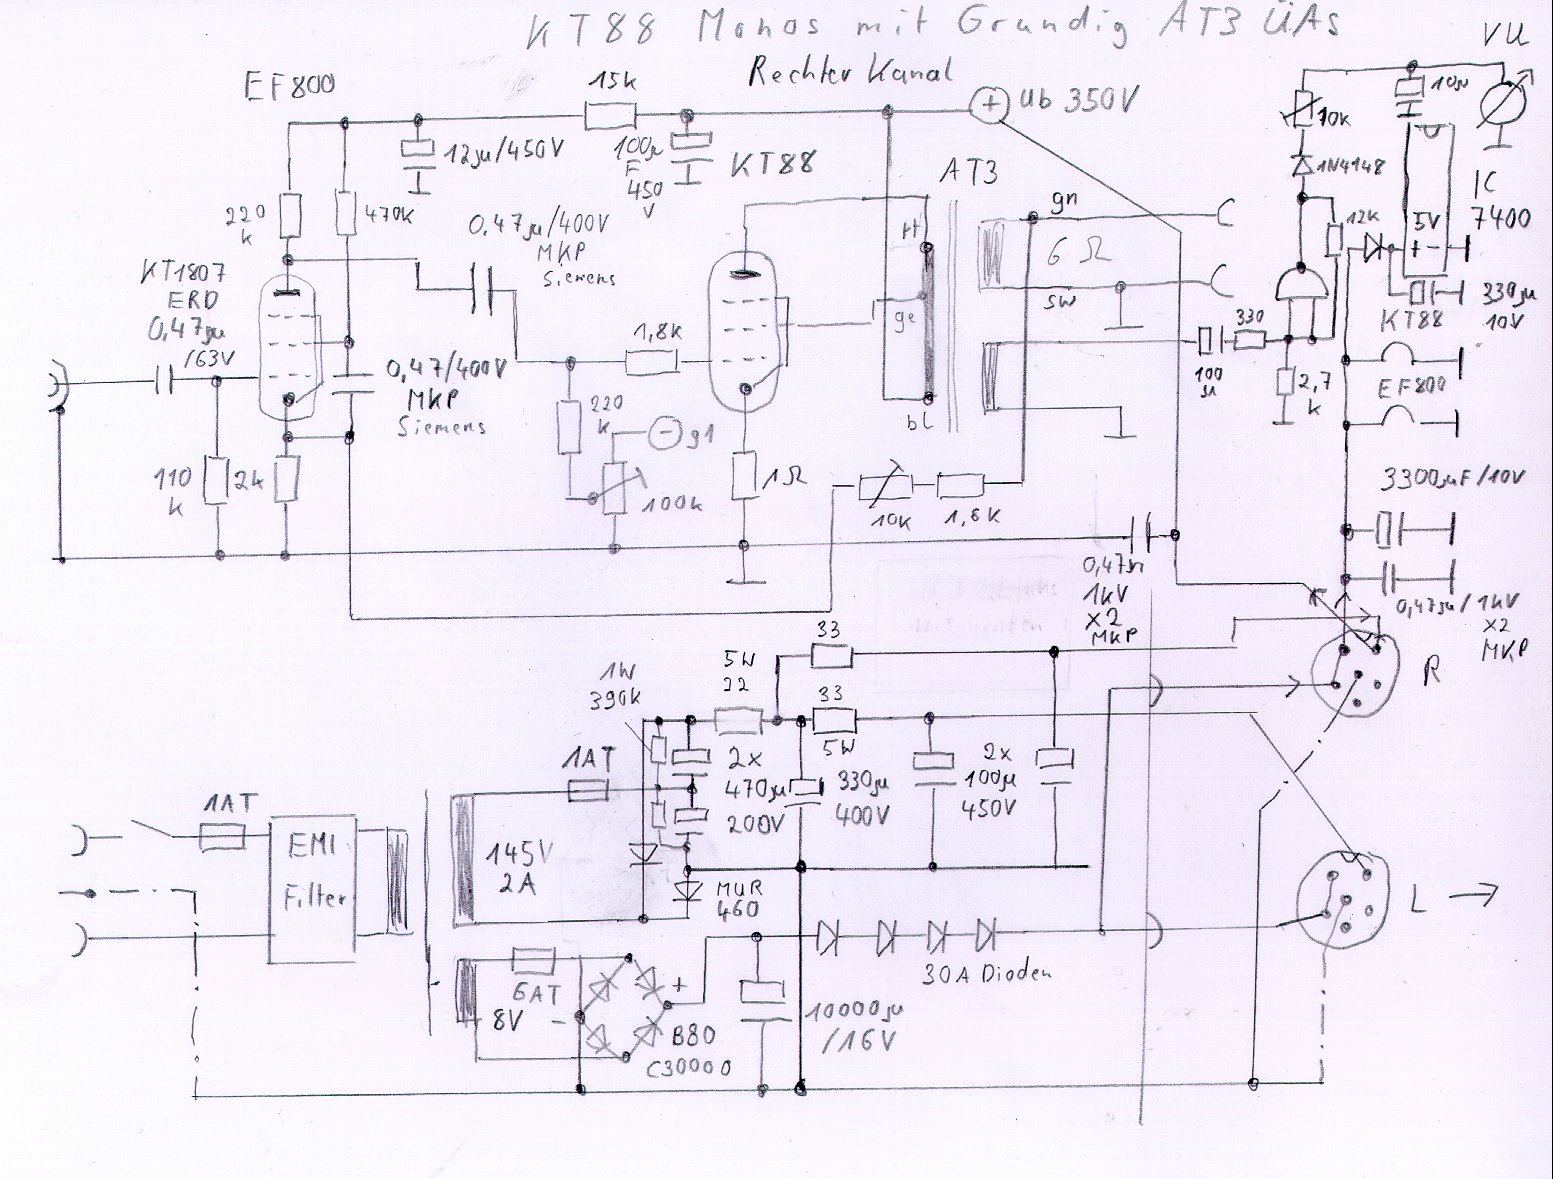 KT88 Monos mit Grundig AT3 ÜAs
Rechter Kanal
VU
EF800
15k
+ Ub 350V
10µ
10k
12µ/450V
100µ
F
450
V
KT88
AT3
1N4148
IC
7400
220
k
470k
0,47µ/400V
MKP
Siemens
rt
gn
6 Ω
12k
5V
+ -
KT1807
ERO
0,47µ
/63V
ge
sw
330
330µ
10V
KT88
1,8k
100
µ
2,7
k
EF800
0,47/400V
MKP
Siemens
220
k
- g1
bl
110
k
2k
100k
1Ω
10k
1,8k
3300µF/10V
0,47µ
1kV
X2
MKP
0,47µ/1kV
X2
MKP
33
5W
22
1W
390k
33
5W
R
1AT
2x
470µ
200V
330µ
400V
2x
100µ
450V
1AT
EMI
Filter
145V
2A
MUR
460
L
30A Dioden
6AT
8V
+
-
B80
C30000
10000µ
/16V